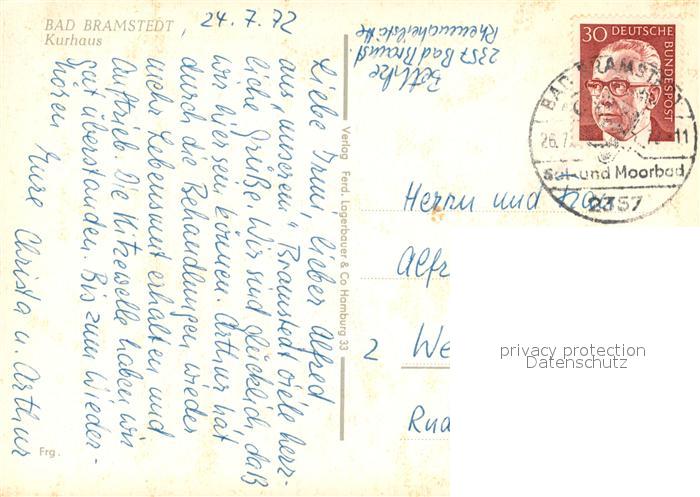 BAD BRAMSTEDT,
Kurhaus
24.7.72
Liebe Irmi, lieber Alfred
aus "unserem" Bramstedt viele herz-
liche Grüße. Wir sind glücklich, daß
wir hier sein können. Arthur hat
durch die Behandlungen wieder
mehr Lebensmut erhalten und
Auftrieb. Die Hitzewelle haben wir
gut überstanden. Bis zum Wieder-
hören Eure Christa u. Arthur
Frg.
Verlag Ferd. Lagerbauer & Co Hamburg 33
2357 Bad Bramst.
Rheumaheilstätte
30 DEUTSCHE
BUNDESPOST
BAD BRAMSTEDT
26.7. 11
Sol- und Moorbad
2357
Herrn und Frau
Alfr
2 We
Rud
privacy protection
Datenschutz